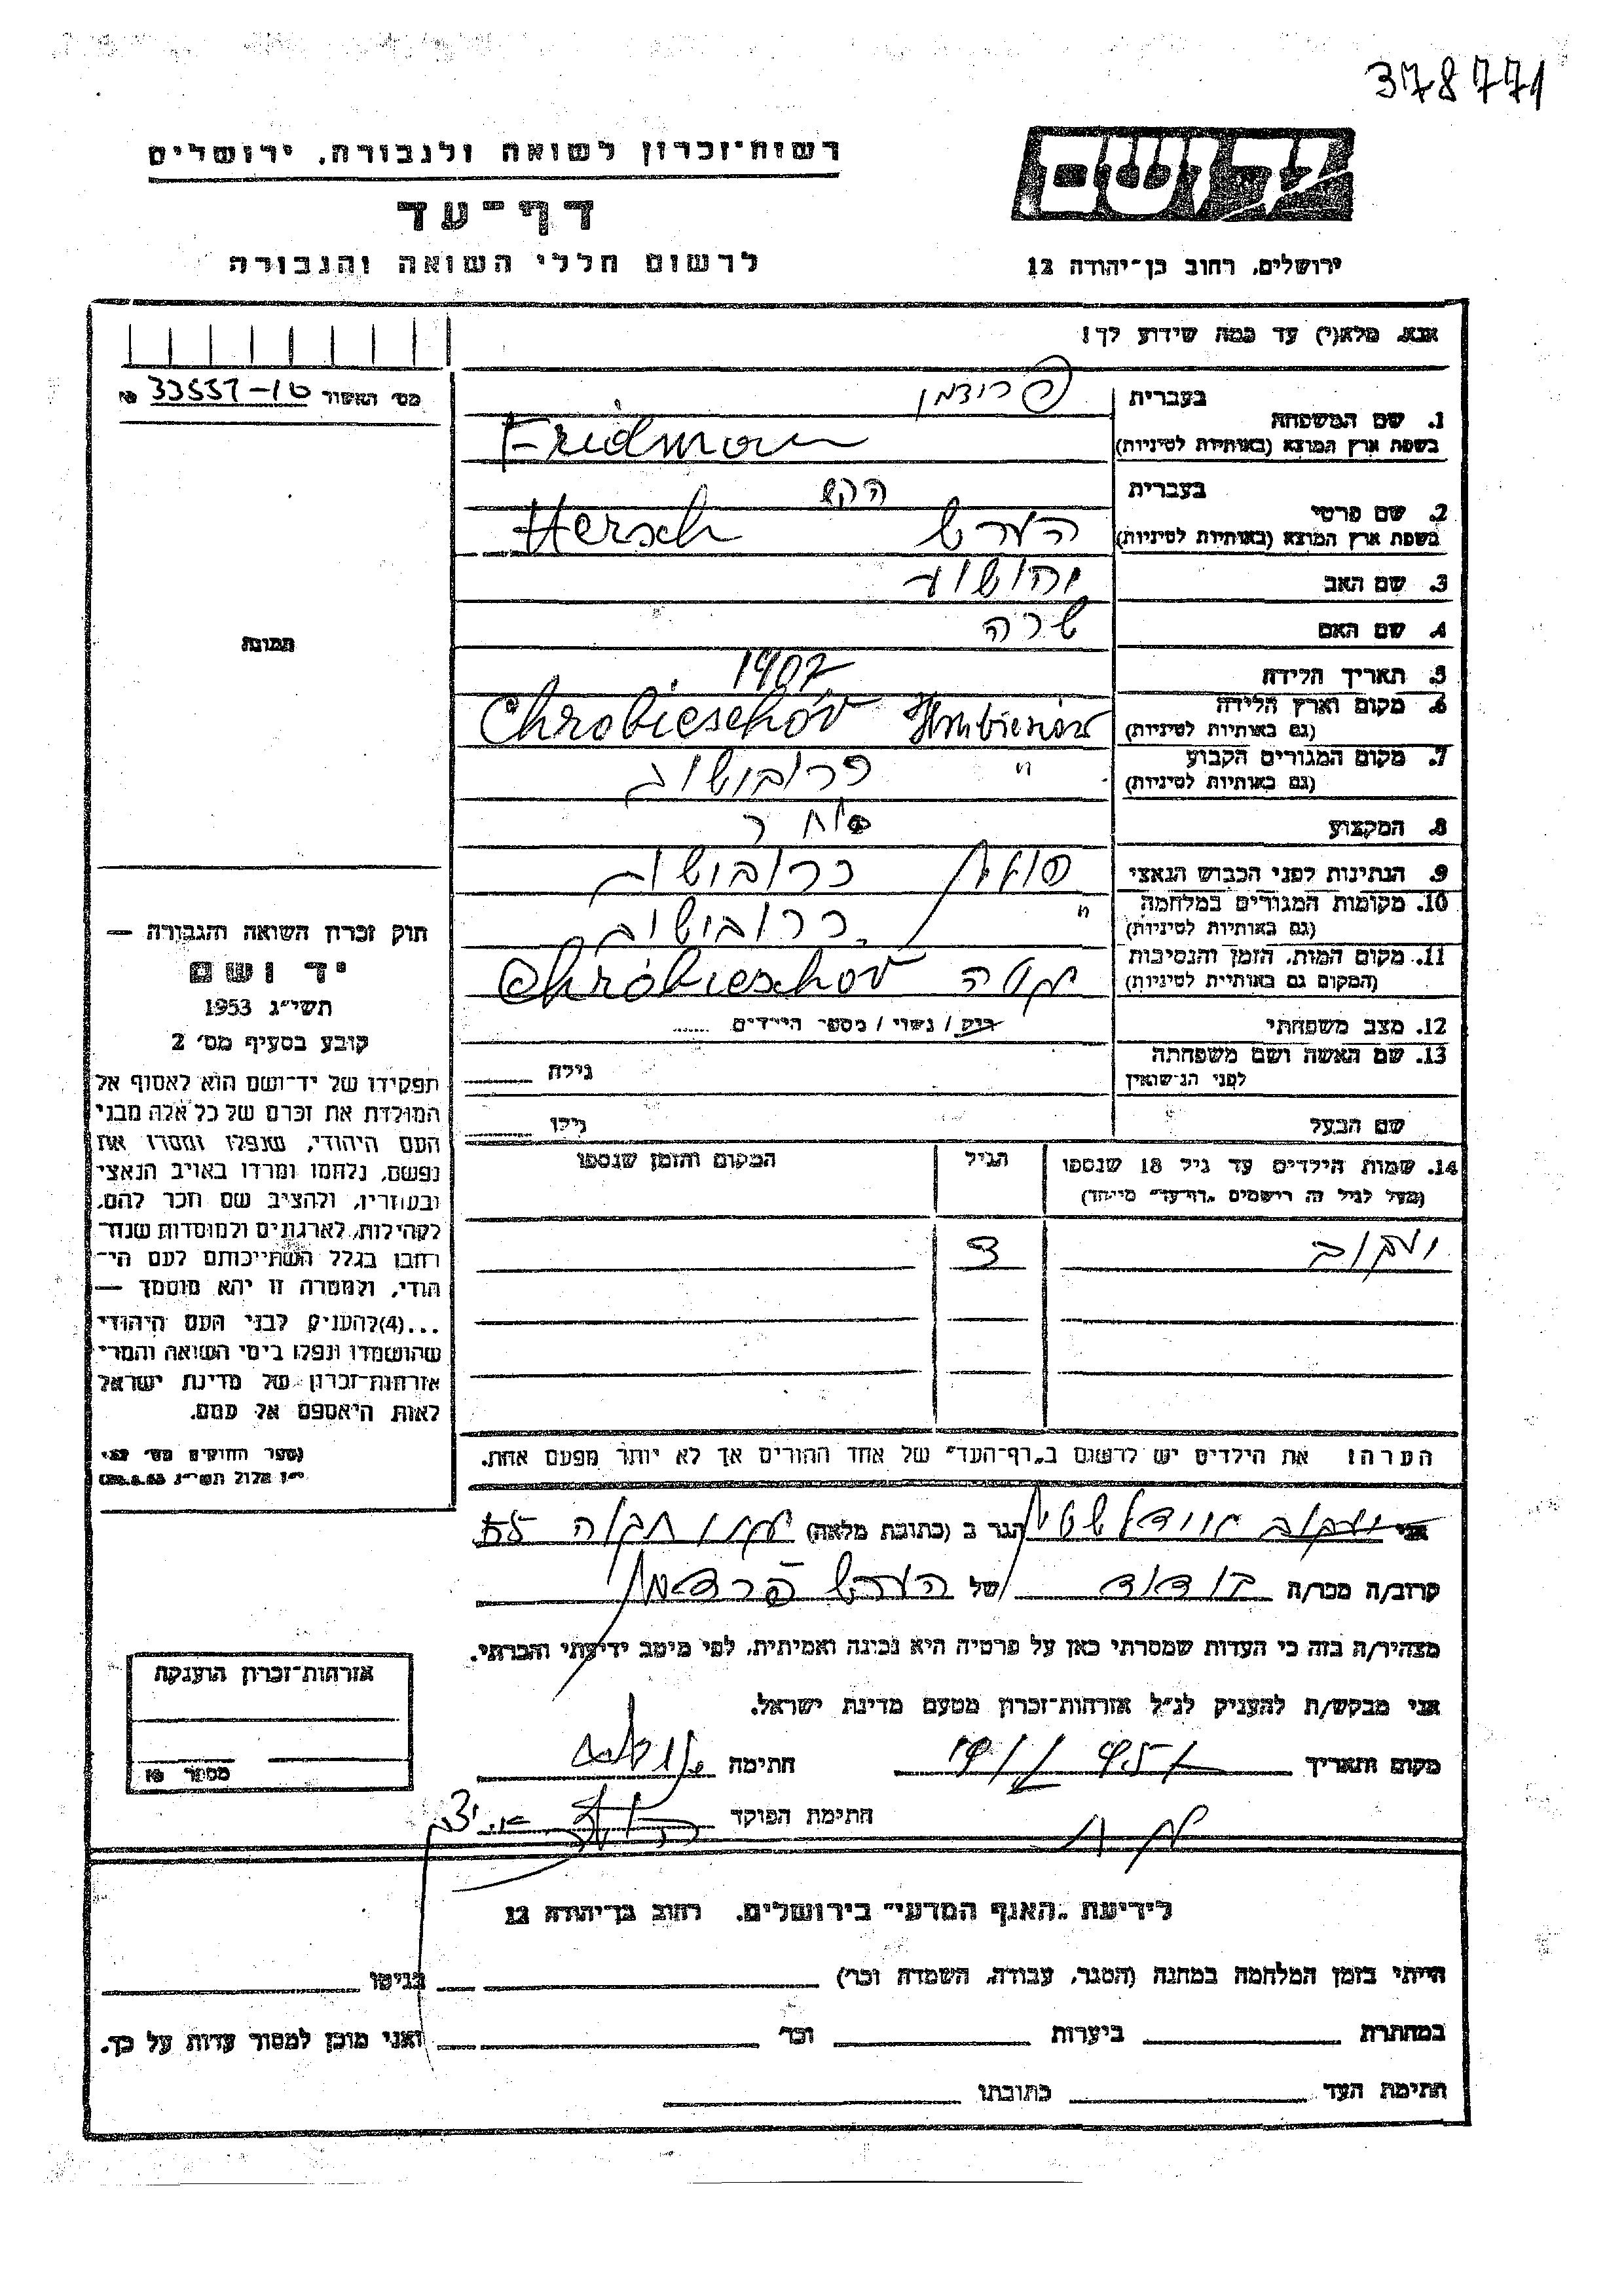 378771
רשות־זכרון לשואה ולגבורה, ירושלים
יד ושם
דף־עד
לרשום חללי השואה והגבורה
ירושלים, רחוב בן־יהודה 12
אנא, מלא(י) עד כמה שידוע לך!
מס׳ האשור
1. שם המשפחה
בעברית פרידמן
בשפת ארץ המוצא (באותיות לטיניות) Fridman
2. שם פרטי
בעברית הרש
בשפת ארץ המוצא (באותיות לטיניות) הערש Hersch
3. שם האב יהושע
4. שם האם שרה
5. תאריך הלידה 1907
6. מקום וארץ הלידה
(גם באותיות לטיניות) Chrobieschov
7. מקום המגורים הקבוע
(גם באותיות לטיניות) " הרובישוב
8. המקצוע סוחר
9. הנתינות לפני הכבוש הנאצי
10. מקומות המגורים במלחמה
(גם באותיות לטיניות) "
11. מקום המות, הזמן והנסיבות
(המקום גם באותיות לטיניות) Chrobieschov
12. מצב משפחתי רווק / נשוי / מספר הילדים
13. שם האשה ושם משפחתה
לפני הנישואין גילה
שם הבעל גילו
14. שמות הילדים עד גיל 18 שנספו הגיל המקום והזמן שנספו
(מעל לגיל זה רושמים "דף־עד" מיוחד)
יעקב 3
הערה: את הילדים יש לרשום ב"דף־העד" של אחד ההורים אך לא יותר מפעם אחת.
תמונה
חוק זכרון השואה והגבורה —
יד ושם
תשי״ג 1953
קובע בסעיף מס׳ 2
תפקידו של יד־ושם הוא לאסוף אל
המולדת את זכרם של כל אלה מבני
העם היהודי, שנפלו ומסרו את
נפשם, נלחמו ומרדו באויב הנאצי
ובעוזריו, ולהציב שם וזכר להם,
לקהילות, לארגונים ולמוסדות שנח־
רבו בגלל השתייכותם לעם הי־
הודי, ולמטרה זו יהא מוסמך —
...(4) להעניק לבני העם היהודי
שהושמדו ונפלו בימי השואה והמרי
אזרחות־זכרון של מדינת ישראל
לאות היאספם אל עמם.
(ספר החוקים מס׳ 132,
י״ז אלול תשי״ג 28.8.53)
אני יעקב הגר ב (כתובת מלאה)
קרוב/ה מכר/ה בן דוד של הערש פרידמן
מצהיר/ה בזה כי העדות שמסרתי כאן על פרטיה היא נכונה ואמיתית, לפי מיטב ידיעתי והכרתי.
אני מבקש/ת להעניק לנ״ל אזרחות־זכרון מטעם מדינת ישראל.
מקום ותאריך חתימה
חתימת הפוקד
אזרחות־זכרון הוענקה
מספר
לידיעת "האגף המדעי" בירושלים, רחוב בן־יהודה 12
הייתי בזמן המלחמה במחנה (הסגר, עבודה, השמדה וכו׳) בגיטו
במחתרת ביערות וכו׳ ואני מוכן למסור עדות על כך.
חתימת העד כתובתו